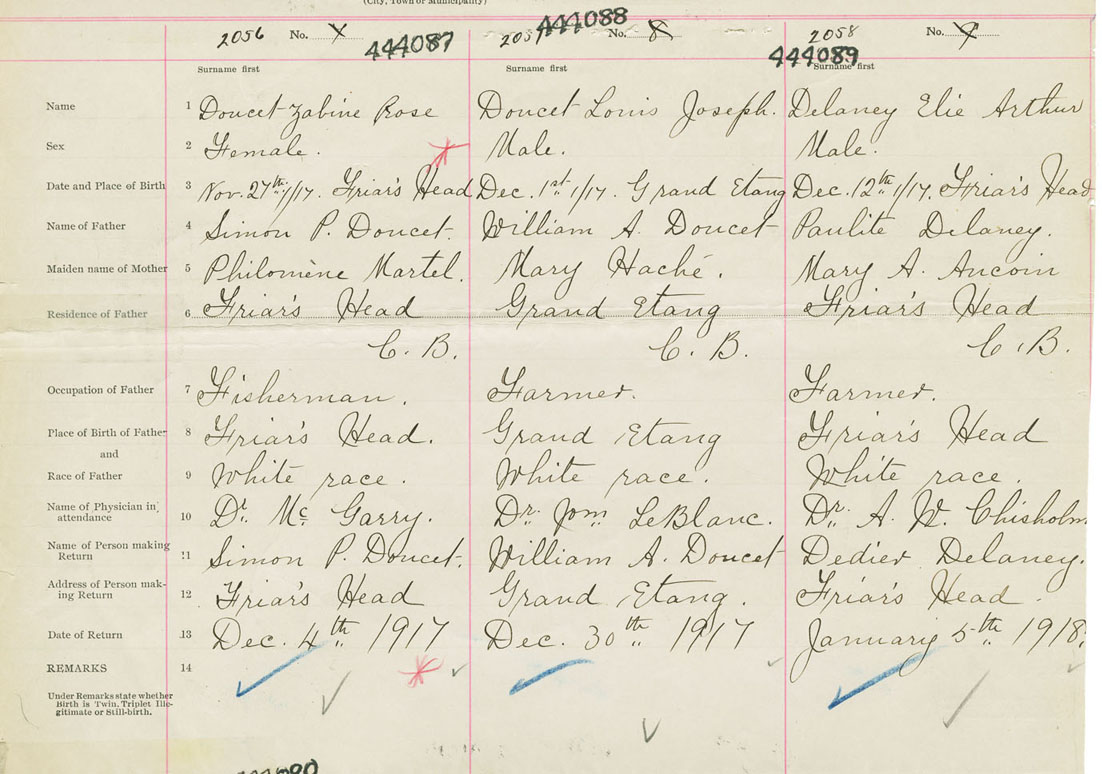 (City, Town or Municipality)
2056 No. 444087 444088 No. 8 2058 No. 9 444089
Surname first Surname first Surname first
Name 1 Doucet Zabine Rose Doucet Louis Joseph. Delaney Elie Arthur
Sex 2 Female. Male. Male.
Date and Place of Birth 3 Nov. 27th 1/17. Friar's Head Dec. 1st 1/17. Grand Etang Dec. 12th 1/17. Friar's Head
Name of Father 4 Simon P. Doucet. William A. Doucet Paulite Delaney.
Maiden name of Mother 5 Philomène Martel. Mary Haché. Mary A. Aucoin
Residence of Father 6 Friar's Head Grand Etang Friar's Head
C. B. C. B. C. B.
Occupation of Father 7 Fisherman. Farmer. Farmer.
Place of Birth of Father 8 Friar's Head. Grand Etang Friar's Head
and
Race of Father 9 White race. White race. White race.
Name of Physician in attendance 10 Dr. Mc Garry. Dr. LeBlanc. Dr. A. W. Chisholm
Name of Person making Return 11 Simon P. Doucet. William A. Doucet Dedier Delaney.
Address of Person making Return 12 Friar's Head Grand Etang. Friar's Head.
Date of Return 13 Dec. 4th 1917 Dec. 30th 1917 January 5th 1918.
REMARKS 14
Under Remarks state whether
Birth is Twin, Triplet Ille-
gitimate or Still-birth.